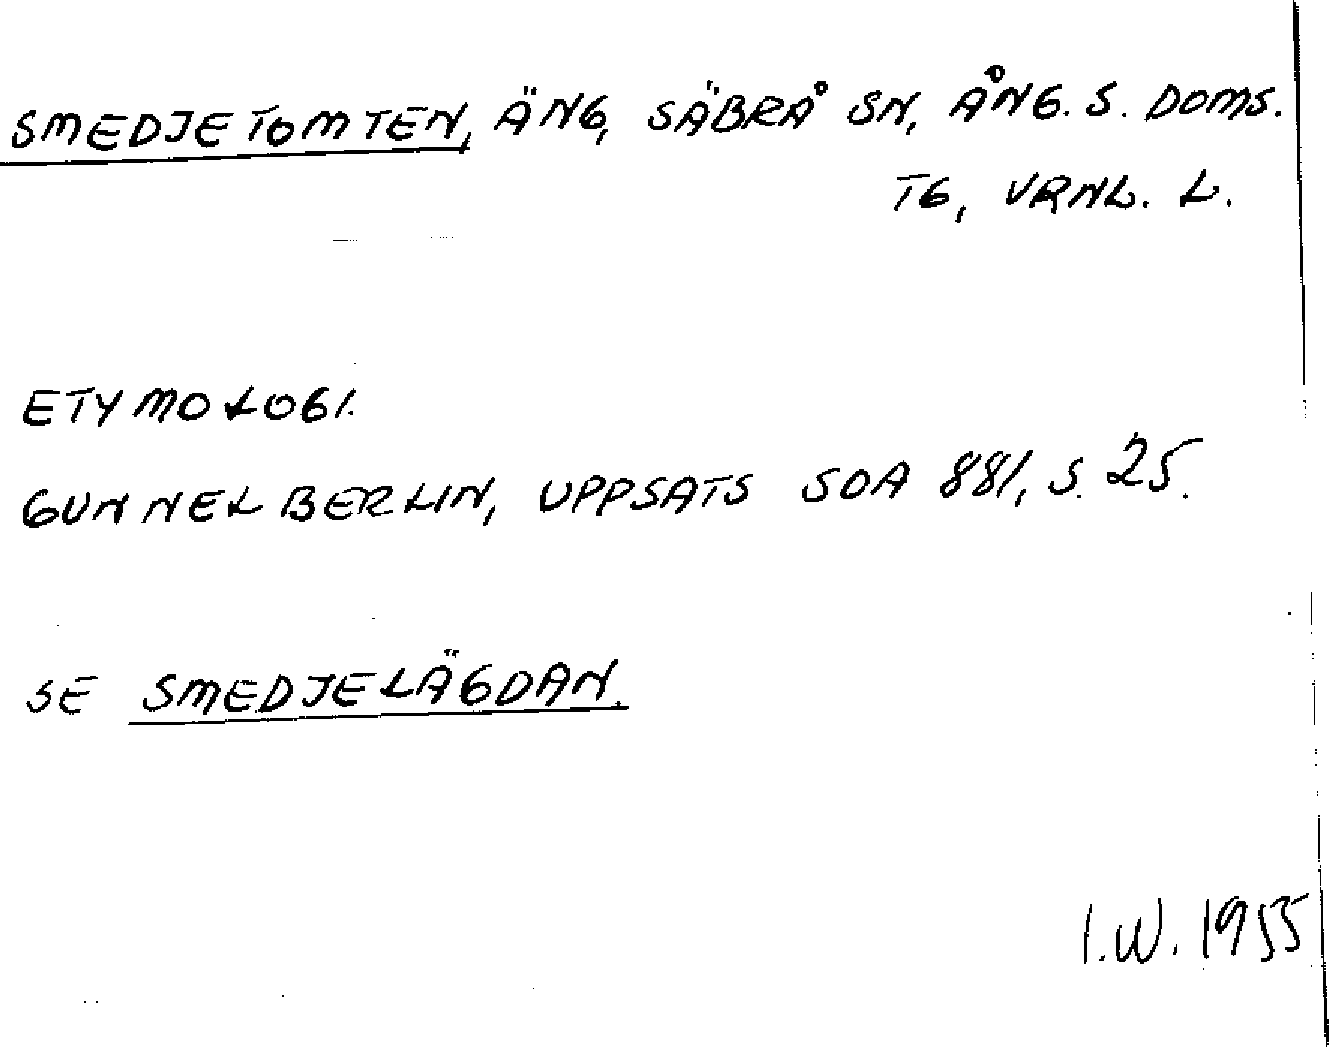 SMEDJETOMTEN, ÄNG, SÄBRÅ SN, ÅNG. S. DOMS.
TG, VRNL. L.
ETYMOLOGI.
GUNNEL BERLIN, UPPSATS SOA 881, S. 25.
SE SMEDJELÄGDAN.
I.W. 1955